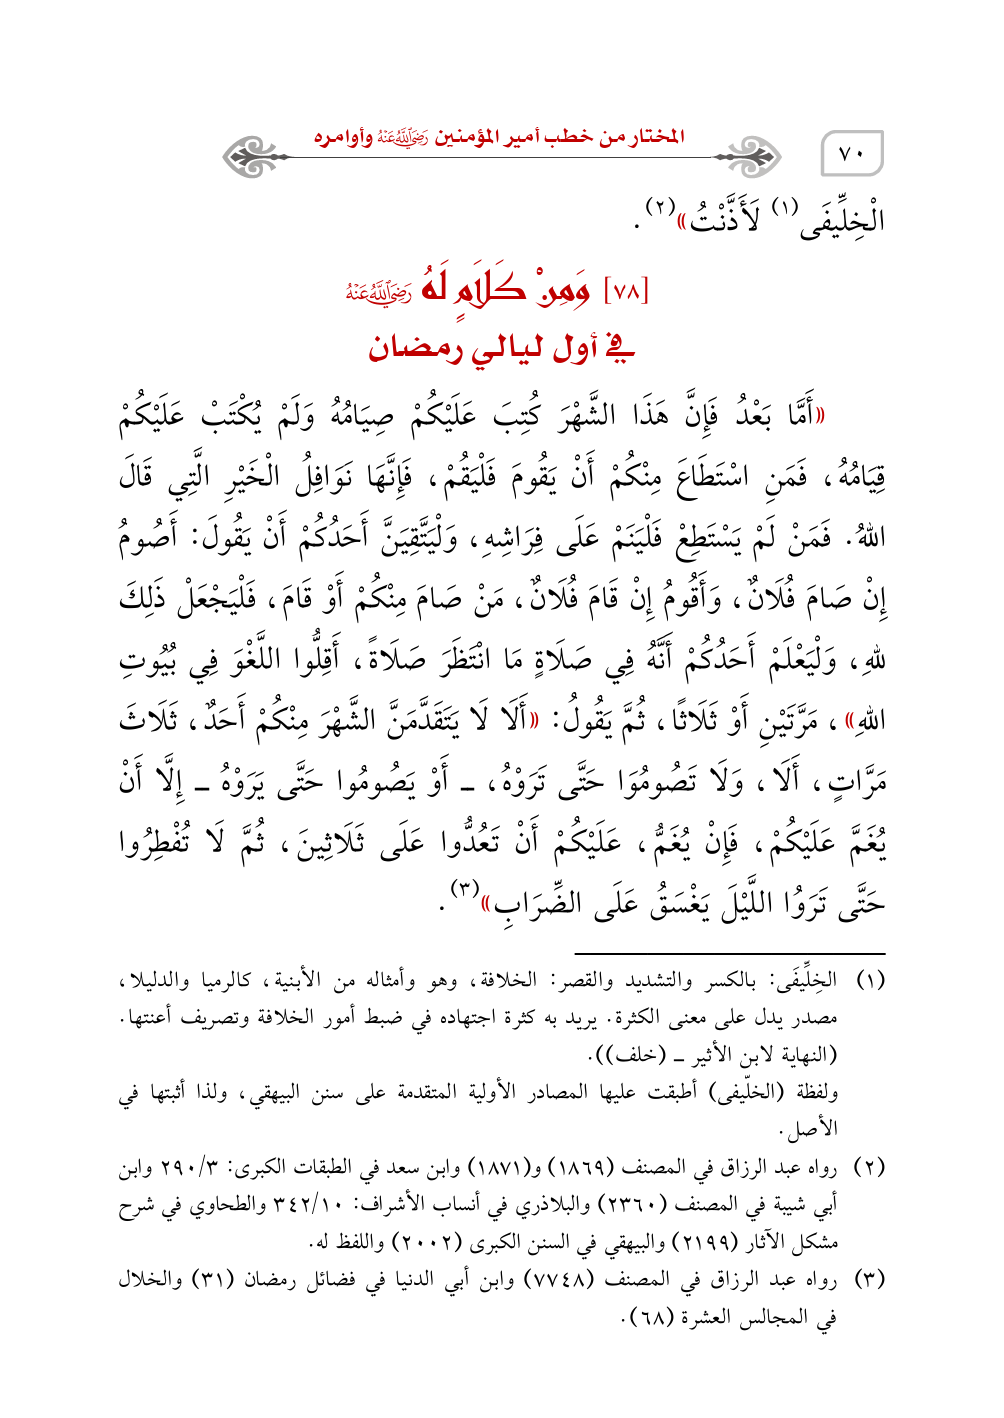 ٧٠
المختار من خطب أمير المؤمنين رضي الله عنه وأوامره
الْخِلِّيفَى(١) لَأَذَّنْتُ»(٢).
[٧٨] وَمِنْ كَلَامٍ لَهُ رضي الله عنه
في أول ليالي رمضان
«أَمَّا بَعْدُ فَإِنَّ هَذَا الشَّهْرَ كُتِبَ عَلَيْكُمْ صِيَامُهُ وَلَمْ يُكْتَبْ عَلَيْكُمْ
قِيَامُهُ، فَمَنِ اسْتَطَاعَ مِنْكُمْ أَنْ يَقُومَ فَلْيَقُمْ، فَإِنَّهَا نَوَافِلُ الْخَيْرِ الَّتِي قَالَ
اللهُ. فَمَنْ لَمْ يَسْتَطِعْ فَلْيَنَمْ عَلَى فِرَاشِهِ، وَلْيَتَّقِيَنَّ أَحَدُكُمْ أَنْ يَقُولَ: أَصُومُ
إِنْ صَامَ فُلَانٌ، وَأَقُومُ إِنْ قَامَ فُلَانٌ، مَنْ صَامَ مِنْكُمْ أَوْ قَامَ، فَلْيَجْعَلْ ذَلِكَ
للهِ، وَلْيَعْلَمْ أَحَدُكُمْ أَنَّهُ فِي صَلَاةٍ مَا انْتَظَرَ صَلَاةً، أَقِلُّوا اللَّغْوَ فِي بُيُوتِ
اللهِ»، مَرَّتَيْنِ أَوْ ثَلَاثًا، ثُمَّ يَقُولُ: «أَلَا لَا يَتَقَدَّمَنَّ الشَّهْرَ مِنْكُمْ أَحَدٌ، ثَلَاثَ
مَرَّاتٍ، أَلَا، وَلَا تَصُومُوَا حَتَّى تَرَوْهُ، ـ أَوْ يَصُومُوا حَتَّى يَرَوْهُ ـ إِلَّا أَنْ
يُغَمَّ عَلَيْكُمْ، فَإِنْ يُغَمُّ، عَلَيْكُمْ أَنْ تَعُدُّوا عَلَى ثَلَاثِينَ، ثُمَّ لَا تُفْطِرُوا
حَتَّى تَرَوُا اللَّيْلَ يَغْسَقُ عَلَى الضِّرَابِ»(٣).
(١) الخِلِّيفَى: بالكسر والتشديد والقصر: الخلافة، وهو وأمثاله من الأبنية، كالرميا والدليلا،
مصدر يدل على معنى الكثرة. يريد به كثرة اجتهاده في ضبط أمور الخلافة وتصريف أعنتها.
(النهاية لابن الأثير ـ (خلف)).
ولفظة (الخلّيفى) أطبقت عليها المصادر الأولية المتقدمة على سنن البيهقي، ولذا أثبتها في
الأصل.
(٢) رواه عبد الرزاق في المصنف (١٨٦٩) و(١٨٧١) وابن سعد في الطبقات الكبرى: ٢٩٠/٣ وابن
أبي شيبة في المصنف (٢٣٦٠) والبلاذري في أنساب الأشراف: ٣٤٢/١٠ والطحاوي في شرح
مشكل الآثار (٢١٩٩) والبيهقي في السنن الكبرى (٢٠٠٢) واللفظ له.
(٣) رواه عبد الرزاق في المصنف (٧٧٤٨) وابن أبي الدنيا في فضائل رمضان (٣١) والخلال
في المجالس العشرة (٦٨).